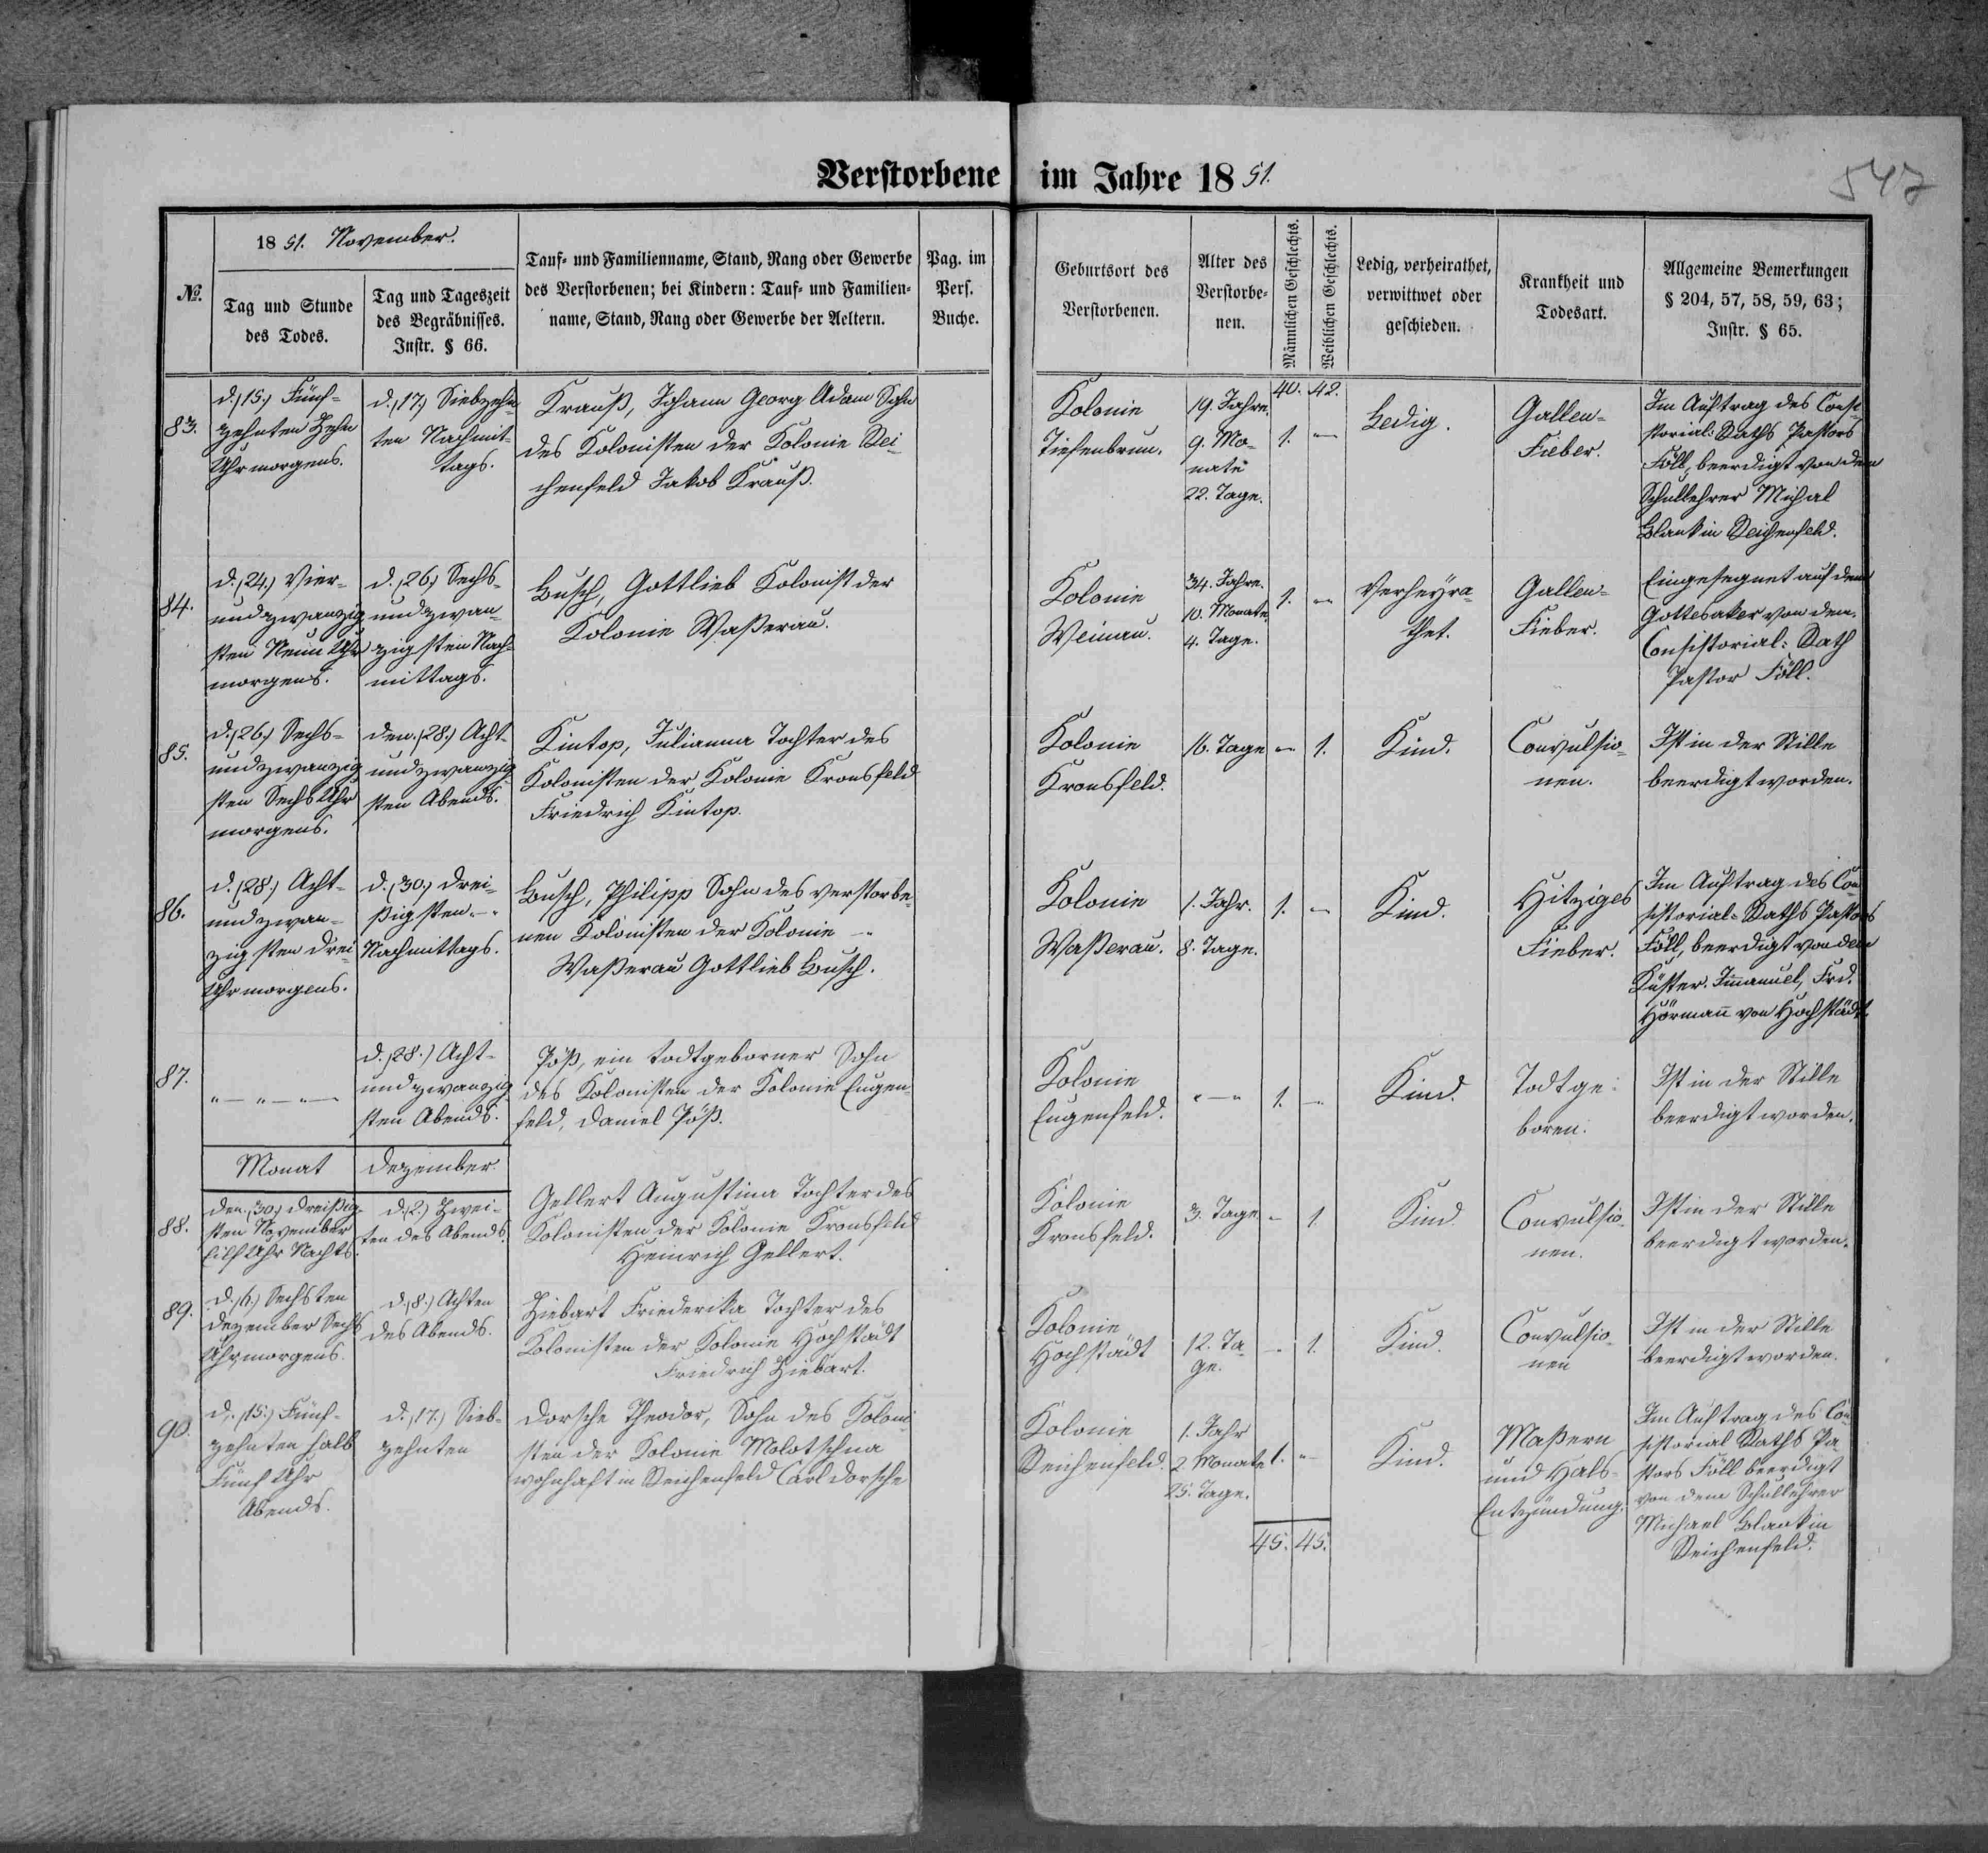 Verstorbene im Jahre 1851.
547
1851. November.
№.
Tag und Stunde
des Todes.
Tag und Tageszeit
des Begräbnisses.
Instr. § 66.
Tauf- und Familienname, Stand, Rang oder Gewerbe
des Verstorbenen; bei Kindern: Tauf- und Familien-
name, Stand, Rang oder Gewerbe der Aeltern.
Pag. im
Pers.
Buche.
Geburtsort des
Verstorbenen.
Alter des
Verstorbe-
nen.
Männlichen Geschlechts.
Weiblichen Geschlechts.
Ledig, verheirathet,
verwittwet oder
geschieden.
Krankheit und
Todesart.
Allgemeine Bemerkungen
§ 204, 57, 58, 59, 63;
Instr. § 65.
40. 42.
83.
d. (15.) Fünf-
zehnten Zehn
Uhr morgens.
d. (17.) Siebzehn
ten Nachmit-
tags.
Krauß, Johann Georg Adam Sohn
des Kolonisten der Kolonie Rei-
chenfeld Jakob Krauß.
Kolonie
Tiefenbrun.
19. Jahre.
9. Mo-
nate
22. Tage.
1. –
Ledig.
Gallen-
Fieber.
Im Auftrag des Consi-
storial: Raths Pastors
Föll, beerdigt von dem
Schullehrer Michal
Blank in Reichenfeld.
84.
d. (24.) Vier-
undzwanzig
sten Neun Uhr
morgens.
d. (26.) Sechs-
undzwan-
zigsten Nach-
mittags.
Busch, Gottlieb Kolonist der
Kolonie Waßerau.
Kolonie
Weinau.
34. Jahre.
10. Monate
4. Tage.
1. –
Verheyra-
thet.
Gallen-
Fieber.
Eingesegnet auf dem
Gottesaker von dem
Consistorial: Rath
Pastor Föll.
85.
d. (26.) Sechs-
undzwanzig
sten Sechs Uhr
morgens.
den. (28.) Acht-
undzwanzig
sten Abends.
Kintop, Julianna Tochter des
Kolonisten der Kolonie Kronsfeld
Friedrich Kintop.
Kolonie
Kronsfeld.
16. Tage
– 1.
Kind.
Convulsio-
nen.
Ist in der Stille
beerdigt worden.
86.
d. (28.) Acht-
undzwan-
zigsten drei
Uhr morgens.
d. (30.) drei-
ßigsten
Nachmittags.
Busch, Philipp Sohn des verstorbe-
nen Kolonisten der Kolonie
Waßerau Gottlieb Busch.
Kolonie
Waßerau.
1. Jahr.
8. Tage.
1. –
Kind.
Hitziges
Fieber.
Im Auftrag des Con
sistorial-Raths Pastors
Föll, beerdigt von dem
Küster. Immanuel, Frd.
Hörmann von Hochstädt.
87.
„ — „ — „ —
d. (28.) Acht-
undzwanzig
sten Abends.
Pöß, ein todtgeborner Sohn
des Kolonisten der Kolonie Eugen-
feld, Daniel Pöß.
Kolonie
Eugenfeld.
„ — „
1. –
Kind.
Todtge-
boren.
Ist in der Stille
beerdigt worden.
Monat dezember
88.
den. (30.) dreißig-
sten November
Eilf Uhr Nachts.
d. (2.) Zwei-
ten des Abends.
Gellert Augustina Tochter des
Kolonisten der Kolonie Kronsfeld
Heinrich Gellert.
Kolonie
Kronsfeld.
3. Tage
– 1.
Kind.
Convulsio-
nen.
Ist in der Stille
beerdigt worden.
89.
d. (6.) Sechsten
dezember Sechs
Uhr morgens.
d. (8.) Achten
des Abends.
Ziebart Friederika Tochter des
Kolonisten der Kolonie Hochstädt
Friedrich Ziebart.
Kolonie
Hochstädt
12. Ta-
ge.
– 1.
Kind.
Convulsio-
nen
Ist in der Stille
beerdigt worden.
90.
d. (15.) Fünf-
zehnten halb
Fünf Uhr
Abends.
d. (17.) Sieb-
zehnten
Dorsche Theodor, Sohn des Koloni-
sten der Kolonie Molotschna
wohnhaft in Reichenfeld Carl Dorsche
Kolonie
Reichenfeld.
1. Jahr
2. Monate
25. Tage.
1. –
Kind.
Maßern
und Hals-
Entzündung.
Im Auftrag des Con-
sistorial Raths Pa-
stors Föll beerdigt
von dem Schullehrer
Michael Blank in
Reichenfeld.
45. 45.